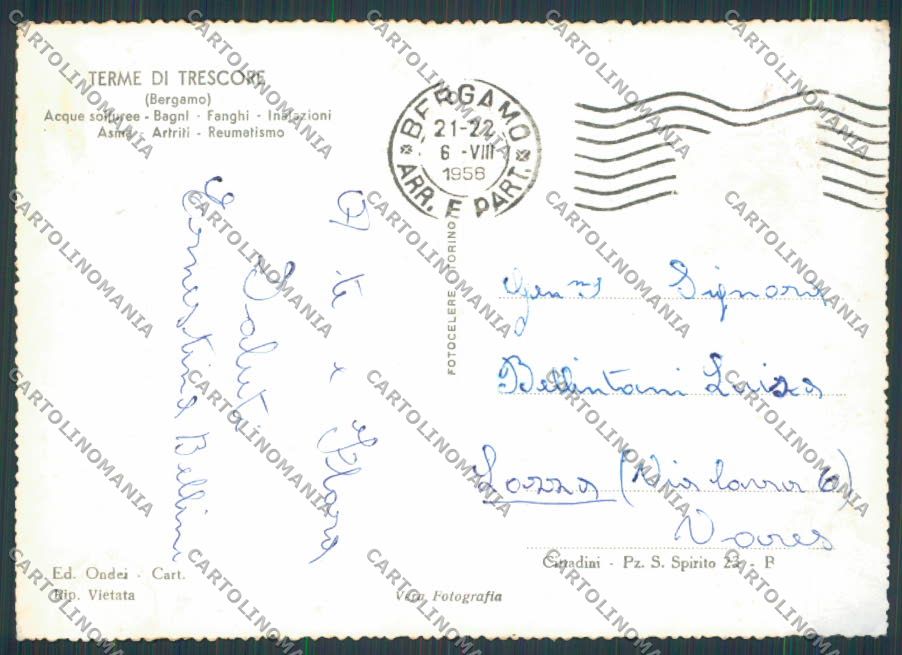 TERME DI TRESCORE
(Bergamo)
Acque solfuree - Bagni - Fanghi - Inalazioni
Asma - Artriti - Reumatismo
BERGAMO
21-22
6 -VIII
1958
ARR. E PART.
FOTOCELERE TORINO
A te e Flora
Saluti
Ernestina Bellini
Gen.ma Signora
Bellintani Luisa
Lozza (Via
6)
Varese
Ed. Ondei - Cart.
Cittadini - Pz. S. Spirito 23 - B
Rip. Vietata
Vera Fotografia
CARTOLINOMANIA